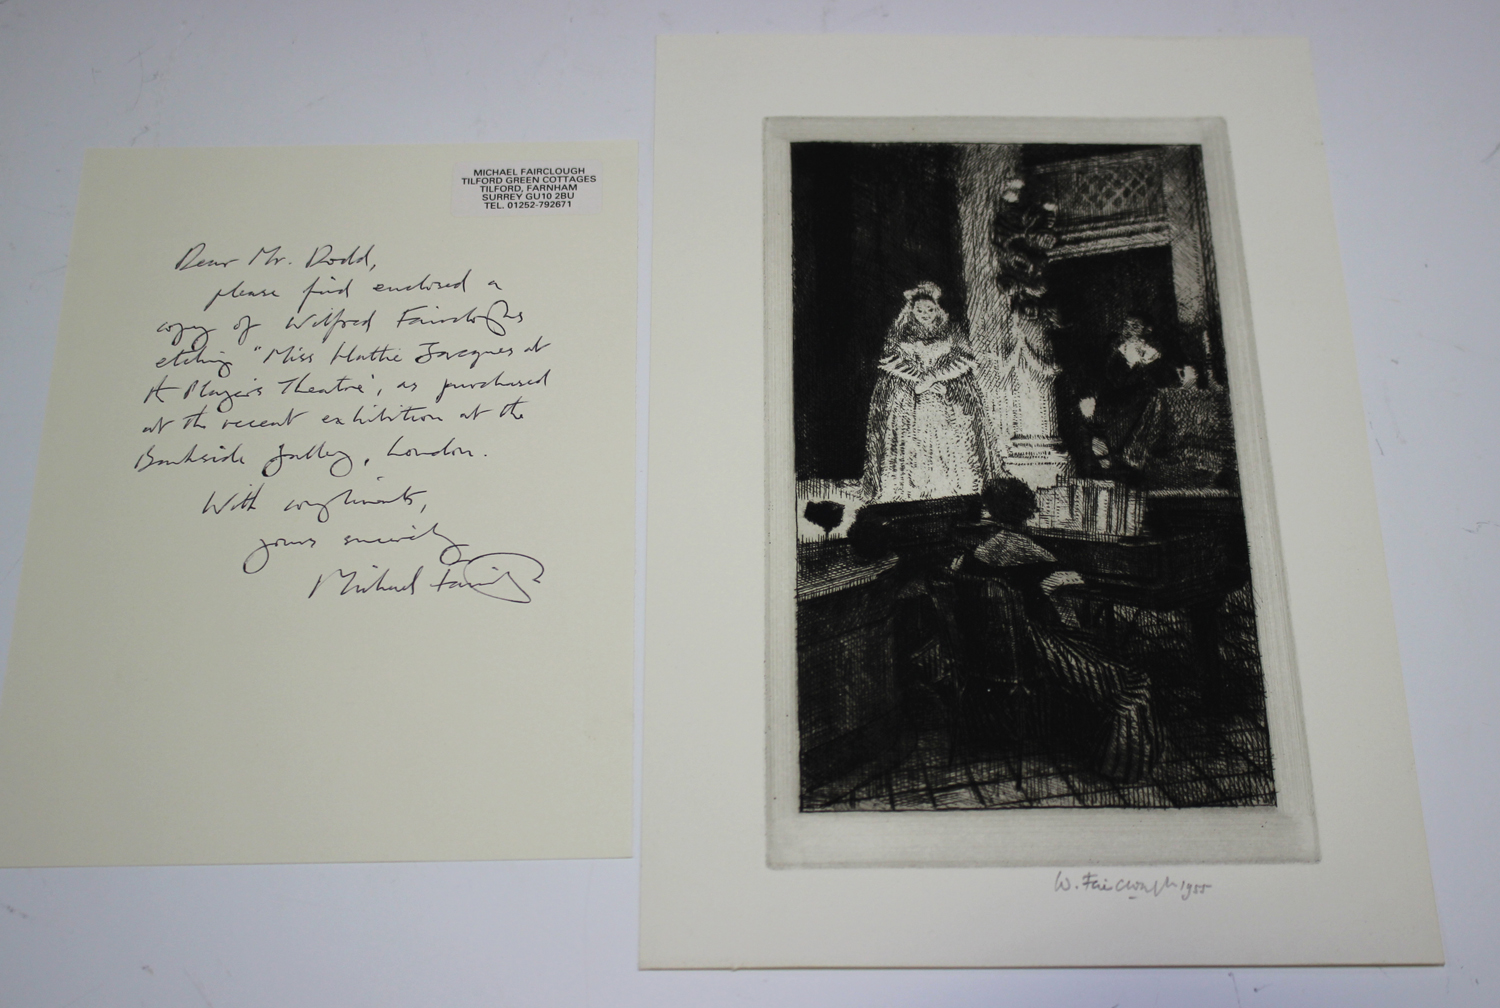 MICHAEL FAIRCLOUGH
TILFORD GREEN COTTAGES
TILFORD, FARNHAM
SURREY GU10 2BU
TEL. 01252-792671
Dear Mr. Dodd,
please find enclosed a
copy of Wilfred Fairclough's
etching "Miss Hattie Jacques at
the Player's Theatre", as purchased
at the recent exhibition at the
Bankside Gallery, London.
With compliments,
yours sincerely
Michael Fairclough
W. Fairclough 1955